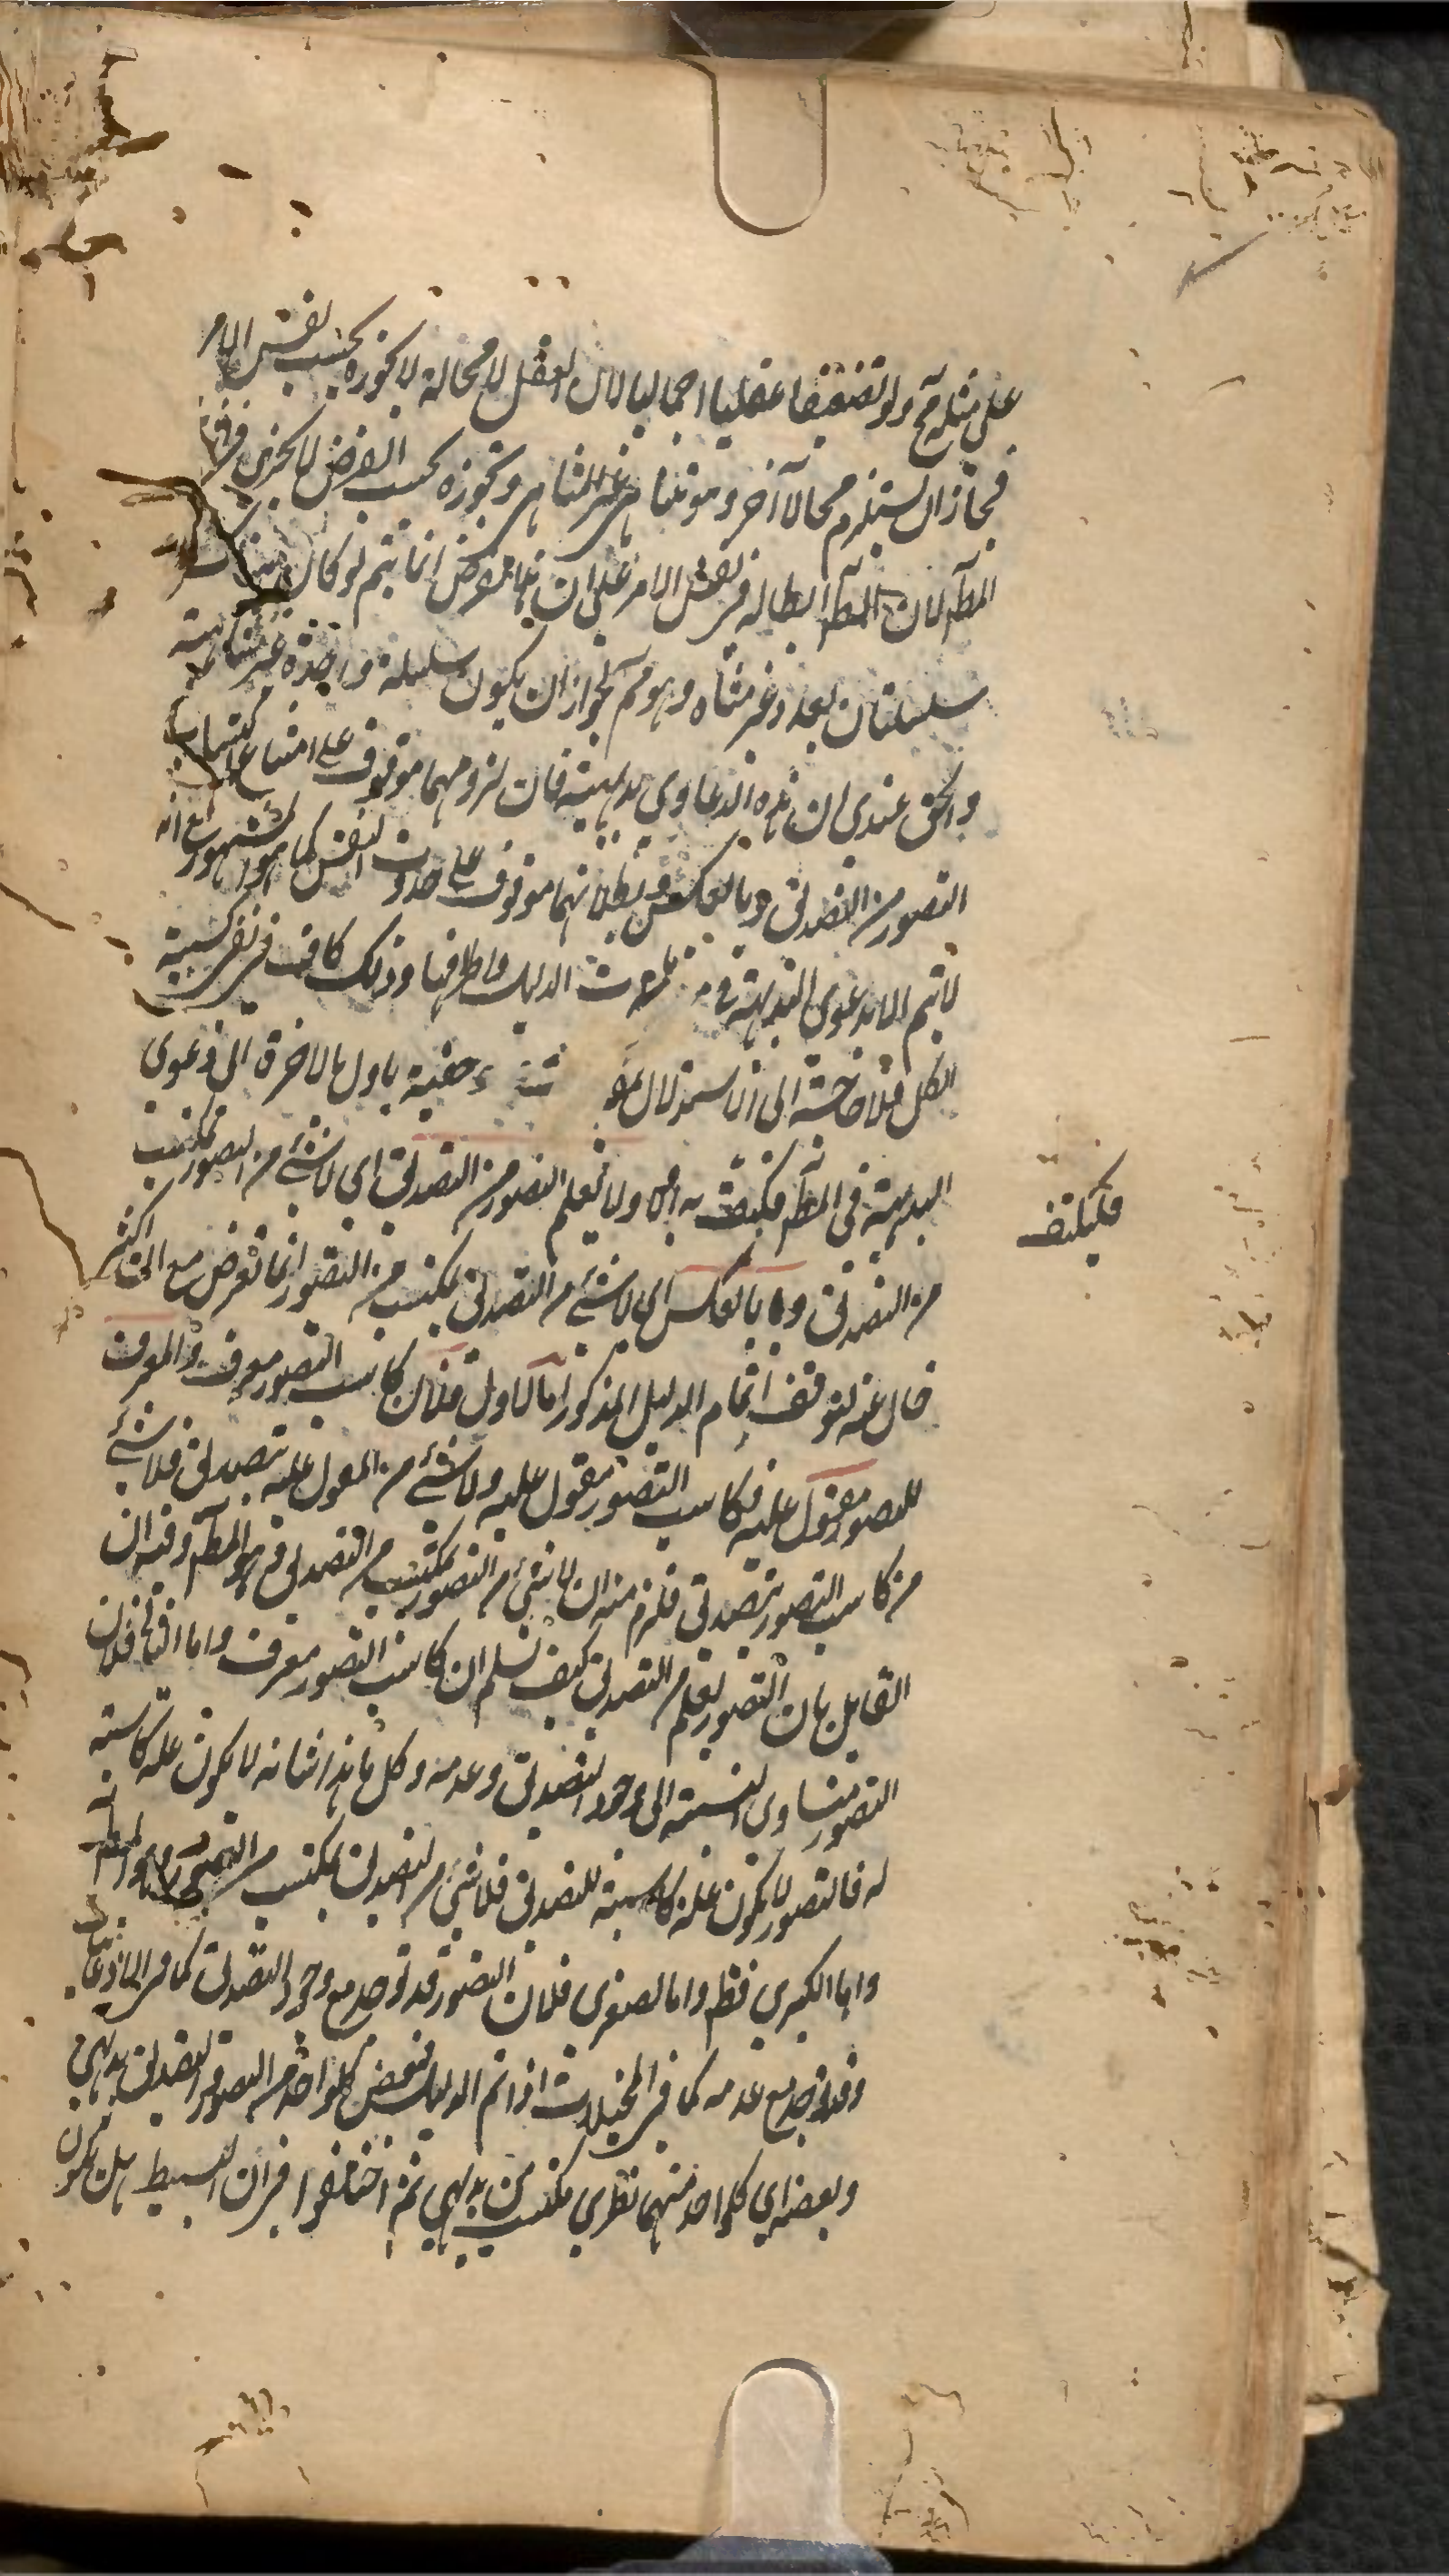 على مثله مح ولو تضعيفا عقليا اجماليا لان العقل لا محالة لا يجوزه بحسب نفس الامر
فجاز ان يستلزم محالا آخر وهو تناهى غير المتناهى وتجوزه بحسب الفرض لا يجزى
المط لان المط ابطاله فى نفس الامر على ان هذا الفرض انما يتم لو كان هناك
سلسلتان بعدد غير متناه وهو مم لجواز ان يكون سلسلة واحدة غير متناهية
والحق عندى ان هذه الدعاوى بديهية فان لزومهما موقوف على امتناع اكتساب
التصور من التصديق وبالعكس وبطلانهما موقوف على حدوث النفس كما هو المشهور مع انه
لا يتم الا بدعوى البداهة فى مقدمات الدليل واطرافها وذلك كاف فى نفى كسبية
الكل فلا حاجة الى الاستدلال خفية باول بالاخرة الى دعوى
البديهية فى المط فليكتف به اولا ولا تعلم التصور من التصديق اى لا شئ من التصور بمكتسب
من التصديق وبالعكس اى لا شئ من التصديق بمكتسب من التصور انما تعرض مع ان اكثر
خال عنه لتوقف اتمام الدليل المذكور اما الاول فلان كاسب التصور معرف والمعرف
للتصور مقول عليه فكاسب التصور مقول عليه ولا شئ من المقول عليه بتصديق فلا شئ
من كاسب التصور بتصديق فلزم منه ان لا شئ من التصور بمكتسب من التصديق وهو المط وفيه ان
القايل بان التصور يعلم من التصديق كيف يسلم ان كاسب التصور معرف واما الثانى فلان
التصور متساوى النسبة الى وجود التصديق وعدمه وكل ما هذا شانه لا يكون علة كاسبة
له فالتصور لا يكون علة كاسبة للتصديق فلا شئ من التصديق بمكتسب من التصور وهو المط
واما الكبرى فظ واما الصغرى فلان التصور قد توجد مع وجود التصديق كما فى الاذعانيات
وقد توجد مع عدمه كما فى المخيلات اذا تم الدليل فبعض كل واحد من التصور والتصديق بديهى
وبعضه اى كل واحد منهما نظرى مكتسب من بديهى ثم اختلفوا فى ان البسيط هل يكون
فليكتف